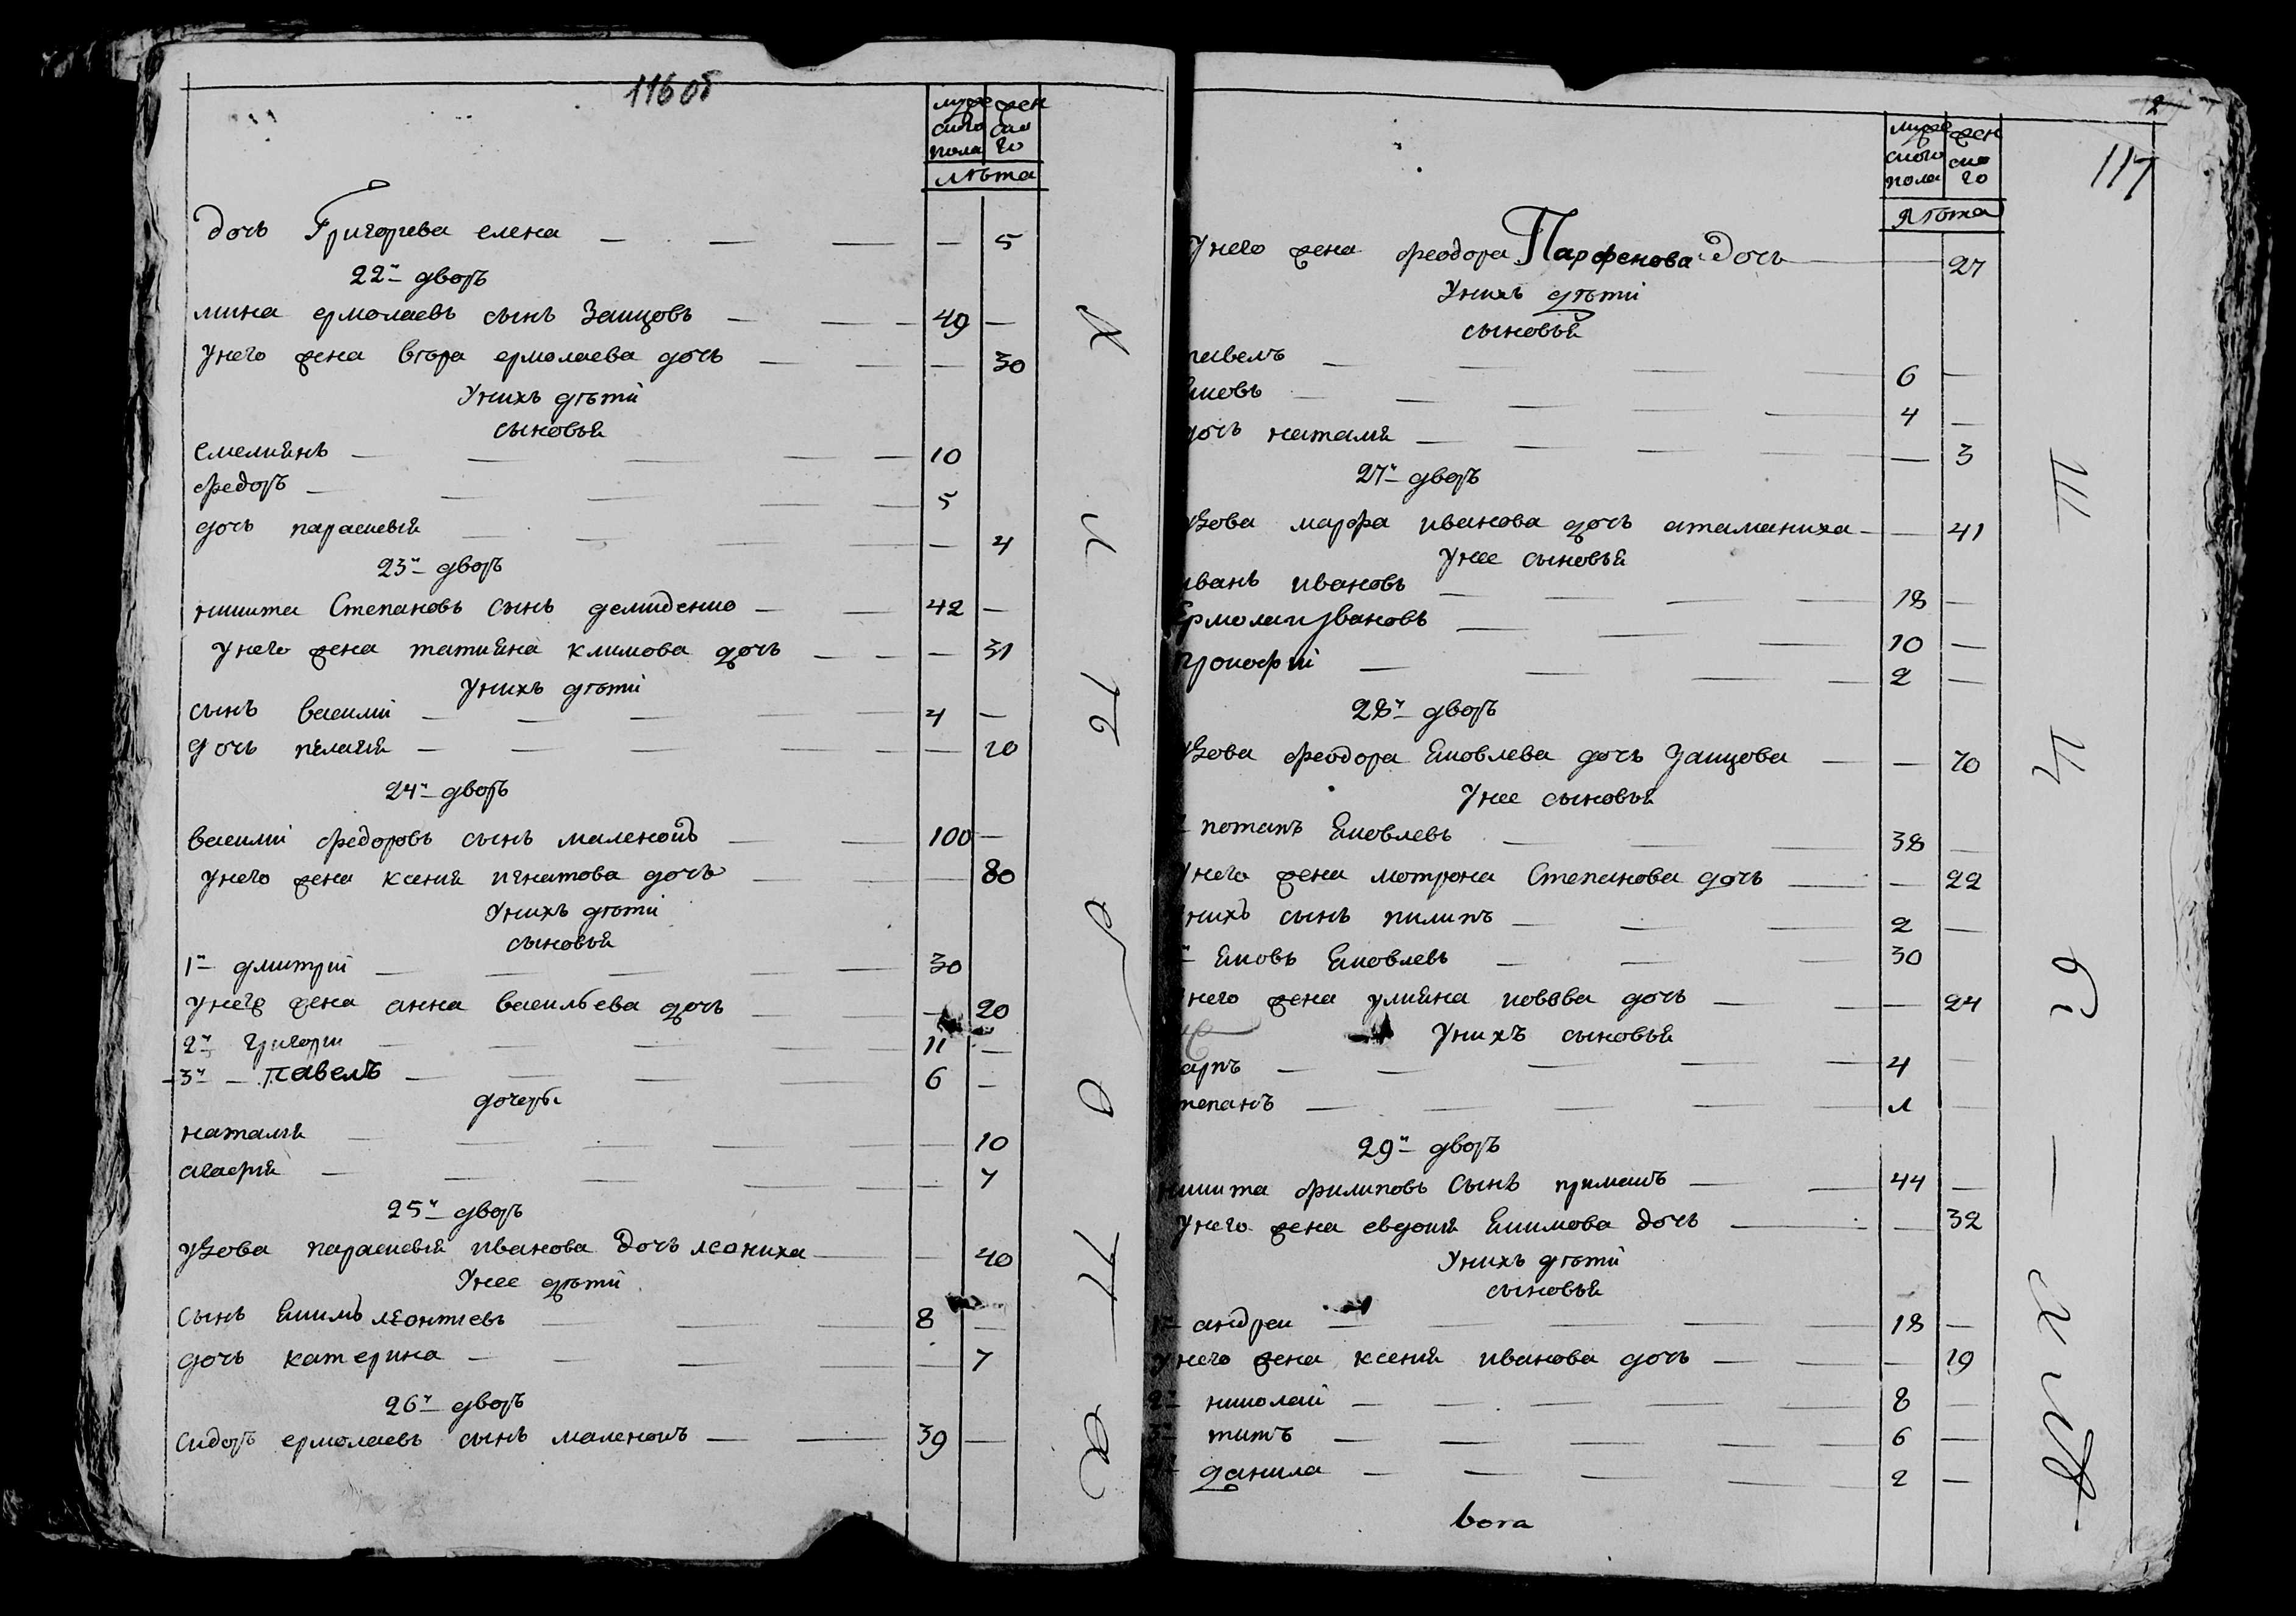 116 об
муже ско́го пола | жен ско го
лѣта
дочь Григорева елена — 5
22й дворъ
мина ермолаевъ сынъ Заицовъ — 49 —
унего жена вѣра ермолаева дочь — 30
Унихъ дѣти
сыновья
емелиянъ — 10
федоръ — 5
дочь параскевия — 4
23й дворъ
никита Степановъ сынъ демиденко — 42 —
унего жена татияна климова дочь — 31
Унихъ дѣти
сынъ василий — 4 —
дочь пелагия — 10
24й дворъ
василий федоровъ сынъ маленкои — 100 —
унего жена ксения игнатова дочь — 80
Унихъ дѣти
сыновья
1й дмитрий — 30
унего жена анна васильева дочь — 20
2й григори — 11 —
3й павелъ — 6 —
дочери
наталия — 10
агафия — 7
25й дворъ
удова параскевия иванова дочь леониха — 40
Унее дѣти
сынъ якимъ леонтиевъ — 8 —
дочь катерина — 7
26й дворъ
сидоръ ермолаевъ сынъ маленкои — 39 —
117
муже ского пола | жен ско го
лѣта
Унего жена феодора Парфенова дочь — 27
Унихъ дѣти
сыновья
павелъ — 6 —
яковъ — 4 —
дочь наталия — 3
27й дворъ
удова марфа иванова дочь атаманиха — 41
Унее сыновья
иванъ ивановъ — 18 —
Ермолаи ивановъ — 10 —
прокофий — 2 —
28й дворъ
удова феодора яковлева дочь Заицова — 70
Унее сыновья
потапъ яковлевъ — 38 —
унего жена мотрона Степанова дочь — 22
унихъ сынъ пилипъ — 2 —
яковъ яковлевъ — 30
унего жена улияна иовова дочь — 24
Унихъ сыновья
карпъ — 4 —
степанъ — 1 —
29й дворъ
никита филиповъ сынъ примакъ — 44 —
Унего жена евдокия якимова дочь — 32
Унихъ дѣти
сыновья
1й андреи — 18 —
унего жена ксения иванова дочь — 19
2й николай — 8 —
3й титъ — 6 —
данила — 2 —